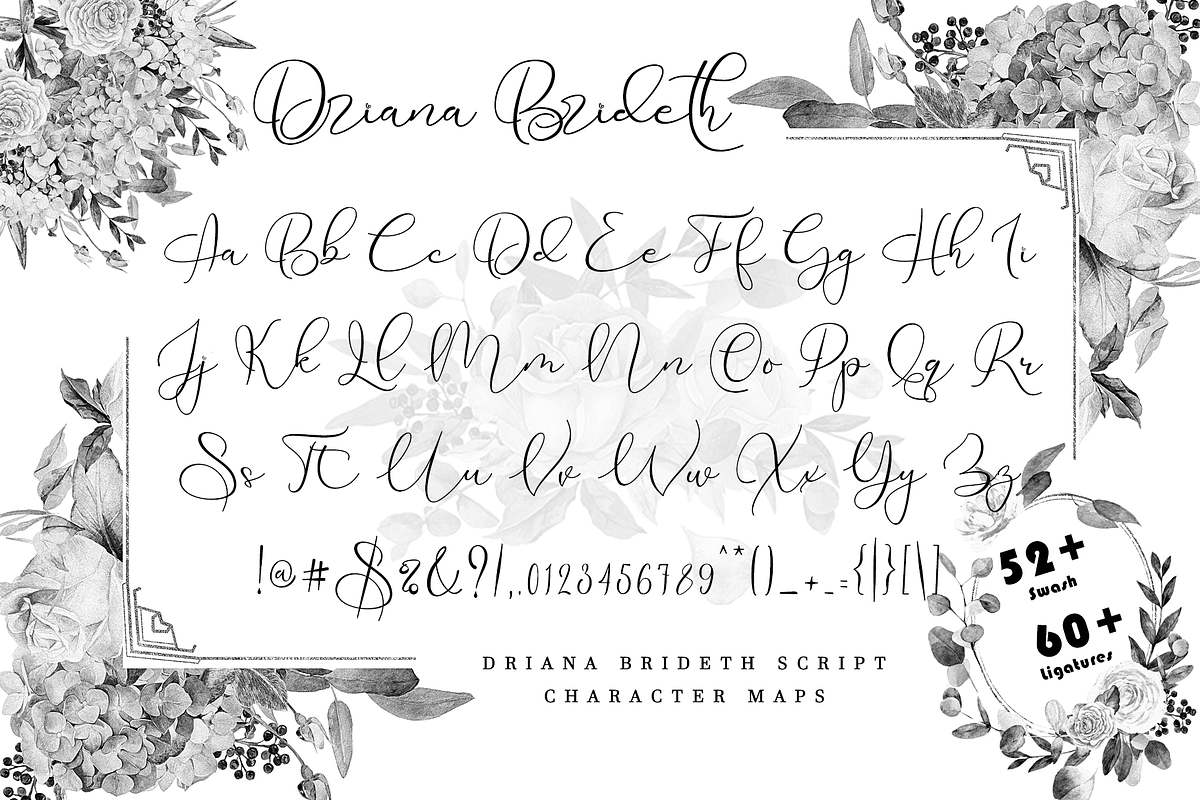 Driana Brideth
Aa Bb Cc Dd Ee Ff Gg Hh Ii
Jj Kk Ll Mm Nn Oo Pp Qq Rr
Ss Tt Uu Vv Ww Xx Yy Zz
!@#$%&?/,.0123456789^*()_+-={|}[\]
52+
Swash
60+
Ligatures
DRIANA BRIDETH SCRIPT
CHARACTER MAPS